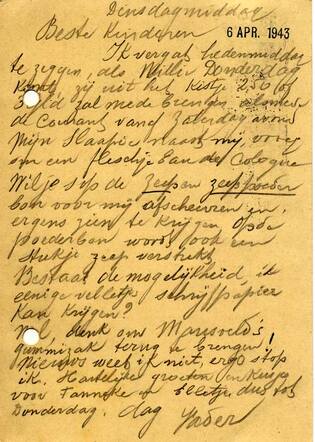 Dinsdagmiddag
Beste Kinderen
6 APR. 1943
Ik vergat hedenmiddag
te zeggen, als Willie Donderdag
komt, zij uit het Kistje 250 of
geld zal mede brengen
de Courant van Zaterdag avond
Mijn slaapje naast mij, vroeg
om een fleschje Eau de Cologne
Wil je s op de zeep en zeeppoeder
bon voor mij afscheuren en
ergens zien te krijgen. Op de
poederbon wordt ook een
stukje zeep verstrekt.
Bestaat de mogelijkheid, ik
eenige velletje schrijfpapier
kan krijgen?
denk om
gummizak terug te brengen!
Nieuws weet ik niet, ergo stop
ik. Hartelijke groeten en kusjes
voor Fanneke en Elletje, dus tot
Donderdag. dag Vader